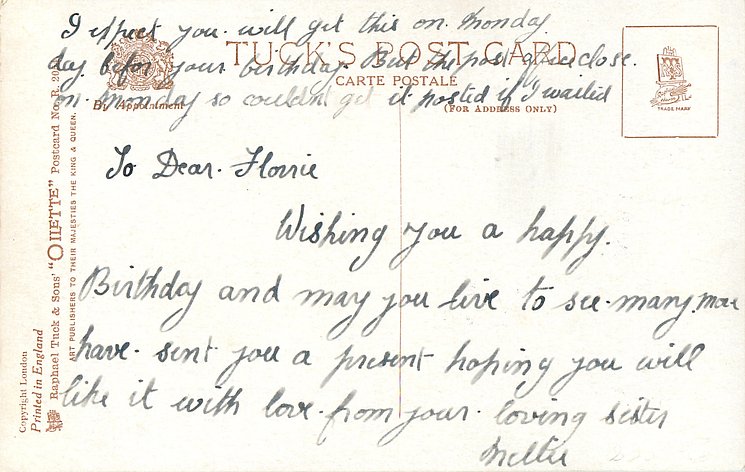 I expect you will get this on Monday
day befor your birthday. But the post office close.
on Monday so couldnt get it posted if I waited
TUCK'S POST CARD
CARTE POSTALE
By Appointment
(FOR ADDRESS ONLY)
TRADE MARK
To Dear Florrie
Wishing you a happy.
Birthday and may you live to see many more
have sent you a present hoping you will
like it with love from your loving sister
Nellie
Copyright London
Printed in England
Raphael Tuck & Sons' "OILETTE" Postcard No.
ART PUBLISHERS TO THEIR MAJESTIES THE KING & QUEEN.